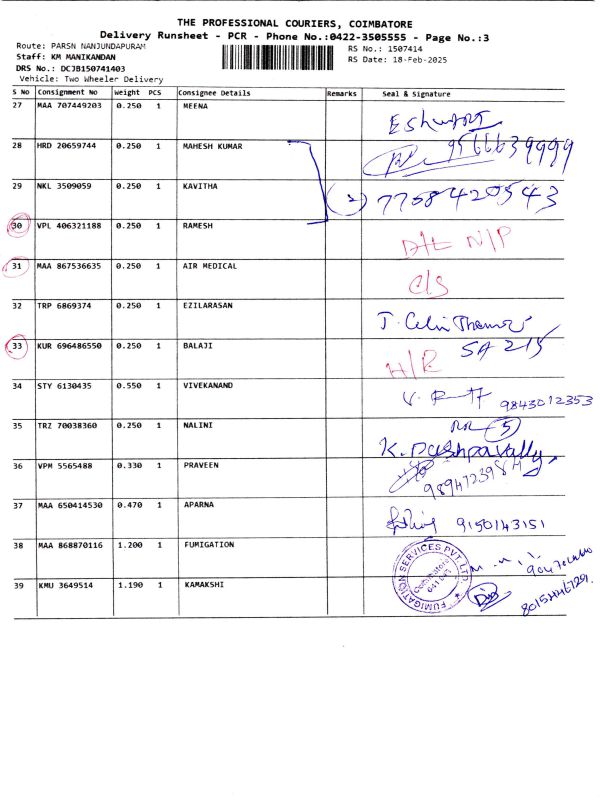 THE PROFESSIONAL COURIERS, COIMBATORE
Delivery Runsheet - PCR - Phone No.:0422-3505555 - Page No.:3
Route: PARSN NANJUNDAPURAM
RS No.: 1507414
Staff: KM MANIKANDAN
RS Date: 18-Feb-2025
DRS No.: DCJB150741403
Vehicle: Two Wheeler Delivery
S No Consignment No Weight PCS Consignee Details Remarks Seal & Signature
27 MAA 707449203 0.250 1 MEENA
28 HRD 20659744 0.250 1 MAHESH KUMAR 9566639999
29 NKL 3509059 0.250 1 KAVITHA 2) 7708420543
30 VPL 406321188 0.250 1 RAMESH D/L N/P
31 MAA 867536635 0.250 1 AIR MEDICAL C/S
32 TRP 6869374 0.250 1 EZILARASAN
33 KUR 696486550 0.250 1 BALAJI H/R
34 STY 6130435 0.550 1 VIVEKANAND 9843012353
35 TRZ 70038360 0.250 1 NALINI K. Pushpavally
36 VPM 5565488 0.330 1 PRAVEEN
37 MAA 650414530 0.470 1 APARNA 9150143151
38 MAA 868870116 1.200 1 FUMIGATION
39 KMU 3649514 1.190 1 KAMAKSHI
FUMIGATION SERVICES PVT. LTD.
Coimbatore